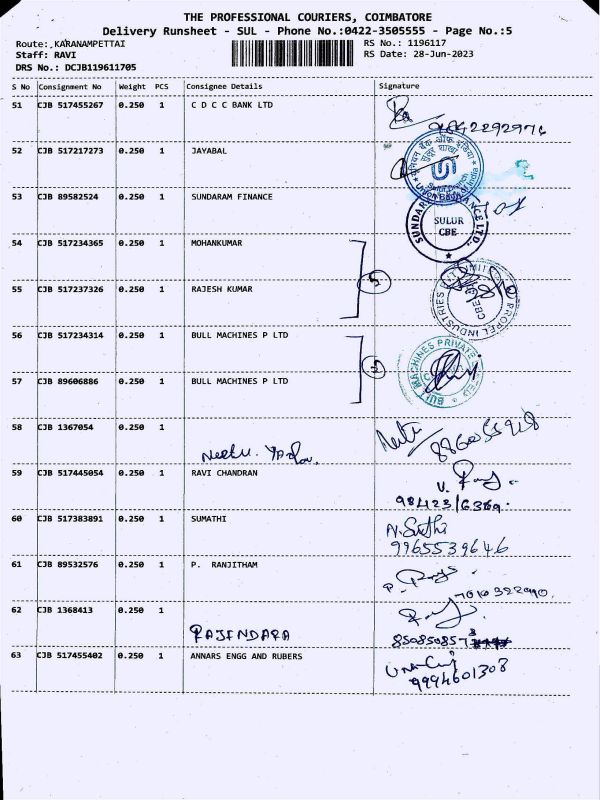 THE PROFESSIONAL COURIERS, COIMBATORE
Delivery Runsheet - SUL - Phone No.:0422-3505555 - Page No.:5
Route: KARANAMPETTAI RS No.: 1196117
Staff: RAVI RS Date: 28-Jun-2023
DRS No.: DCJB119611705
S No Consignment No Weight PCS Consignee Details Signature
51 CJB 517455267 0.250 1 C D C C BANK LTD
9842292976
52 CJB 517217273 0.250 1 JAYABAL
यूनियन बैंक ऑफ इंडिया
Union Bank of India
53 CJB 89582524 0.250 1 SUNDARAM FINANCE
SUNDARAM FINANCE LTD.
SULUR
CBE
54 CJB 517234365 0.250 1 MOHANKUMAR
55 CJB 517237326 0.250 1 RAJESH KUMAR
PROPEL INDUSTRIES PRIVATE LIMITED
CBE
56 CJB 517234314 0.250 1 BULL MACHINES P LTD
BULL MACHINES PRIVATE LIMITED
57 CJB 89606886 0.250 1 BULL MACHINES P LTD
58 CJB 1367054 0.250 1
Neetu. Yadav.
59 CJB 517445054 0.250 1 RAVI CHANDRAN
98423/6369.
60 CJB 517383891 0.250 1 SUMATHI
9965539646
61 CJB 89532576 0.250 1 P. RANJITHAM
7010322990.
62 CJB 1368413 0.250 1
RAJENDARA
8508508573
63 CJB 517455402 0.250 1 ANNARS ENGG AND RUBERS
9994601308